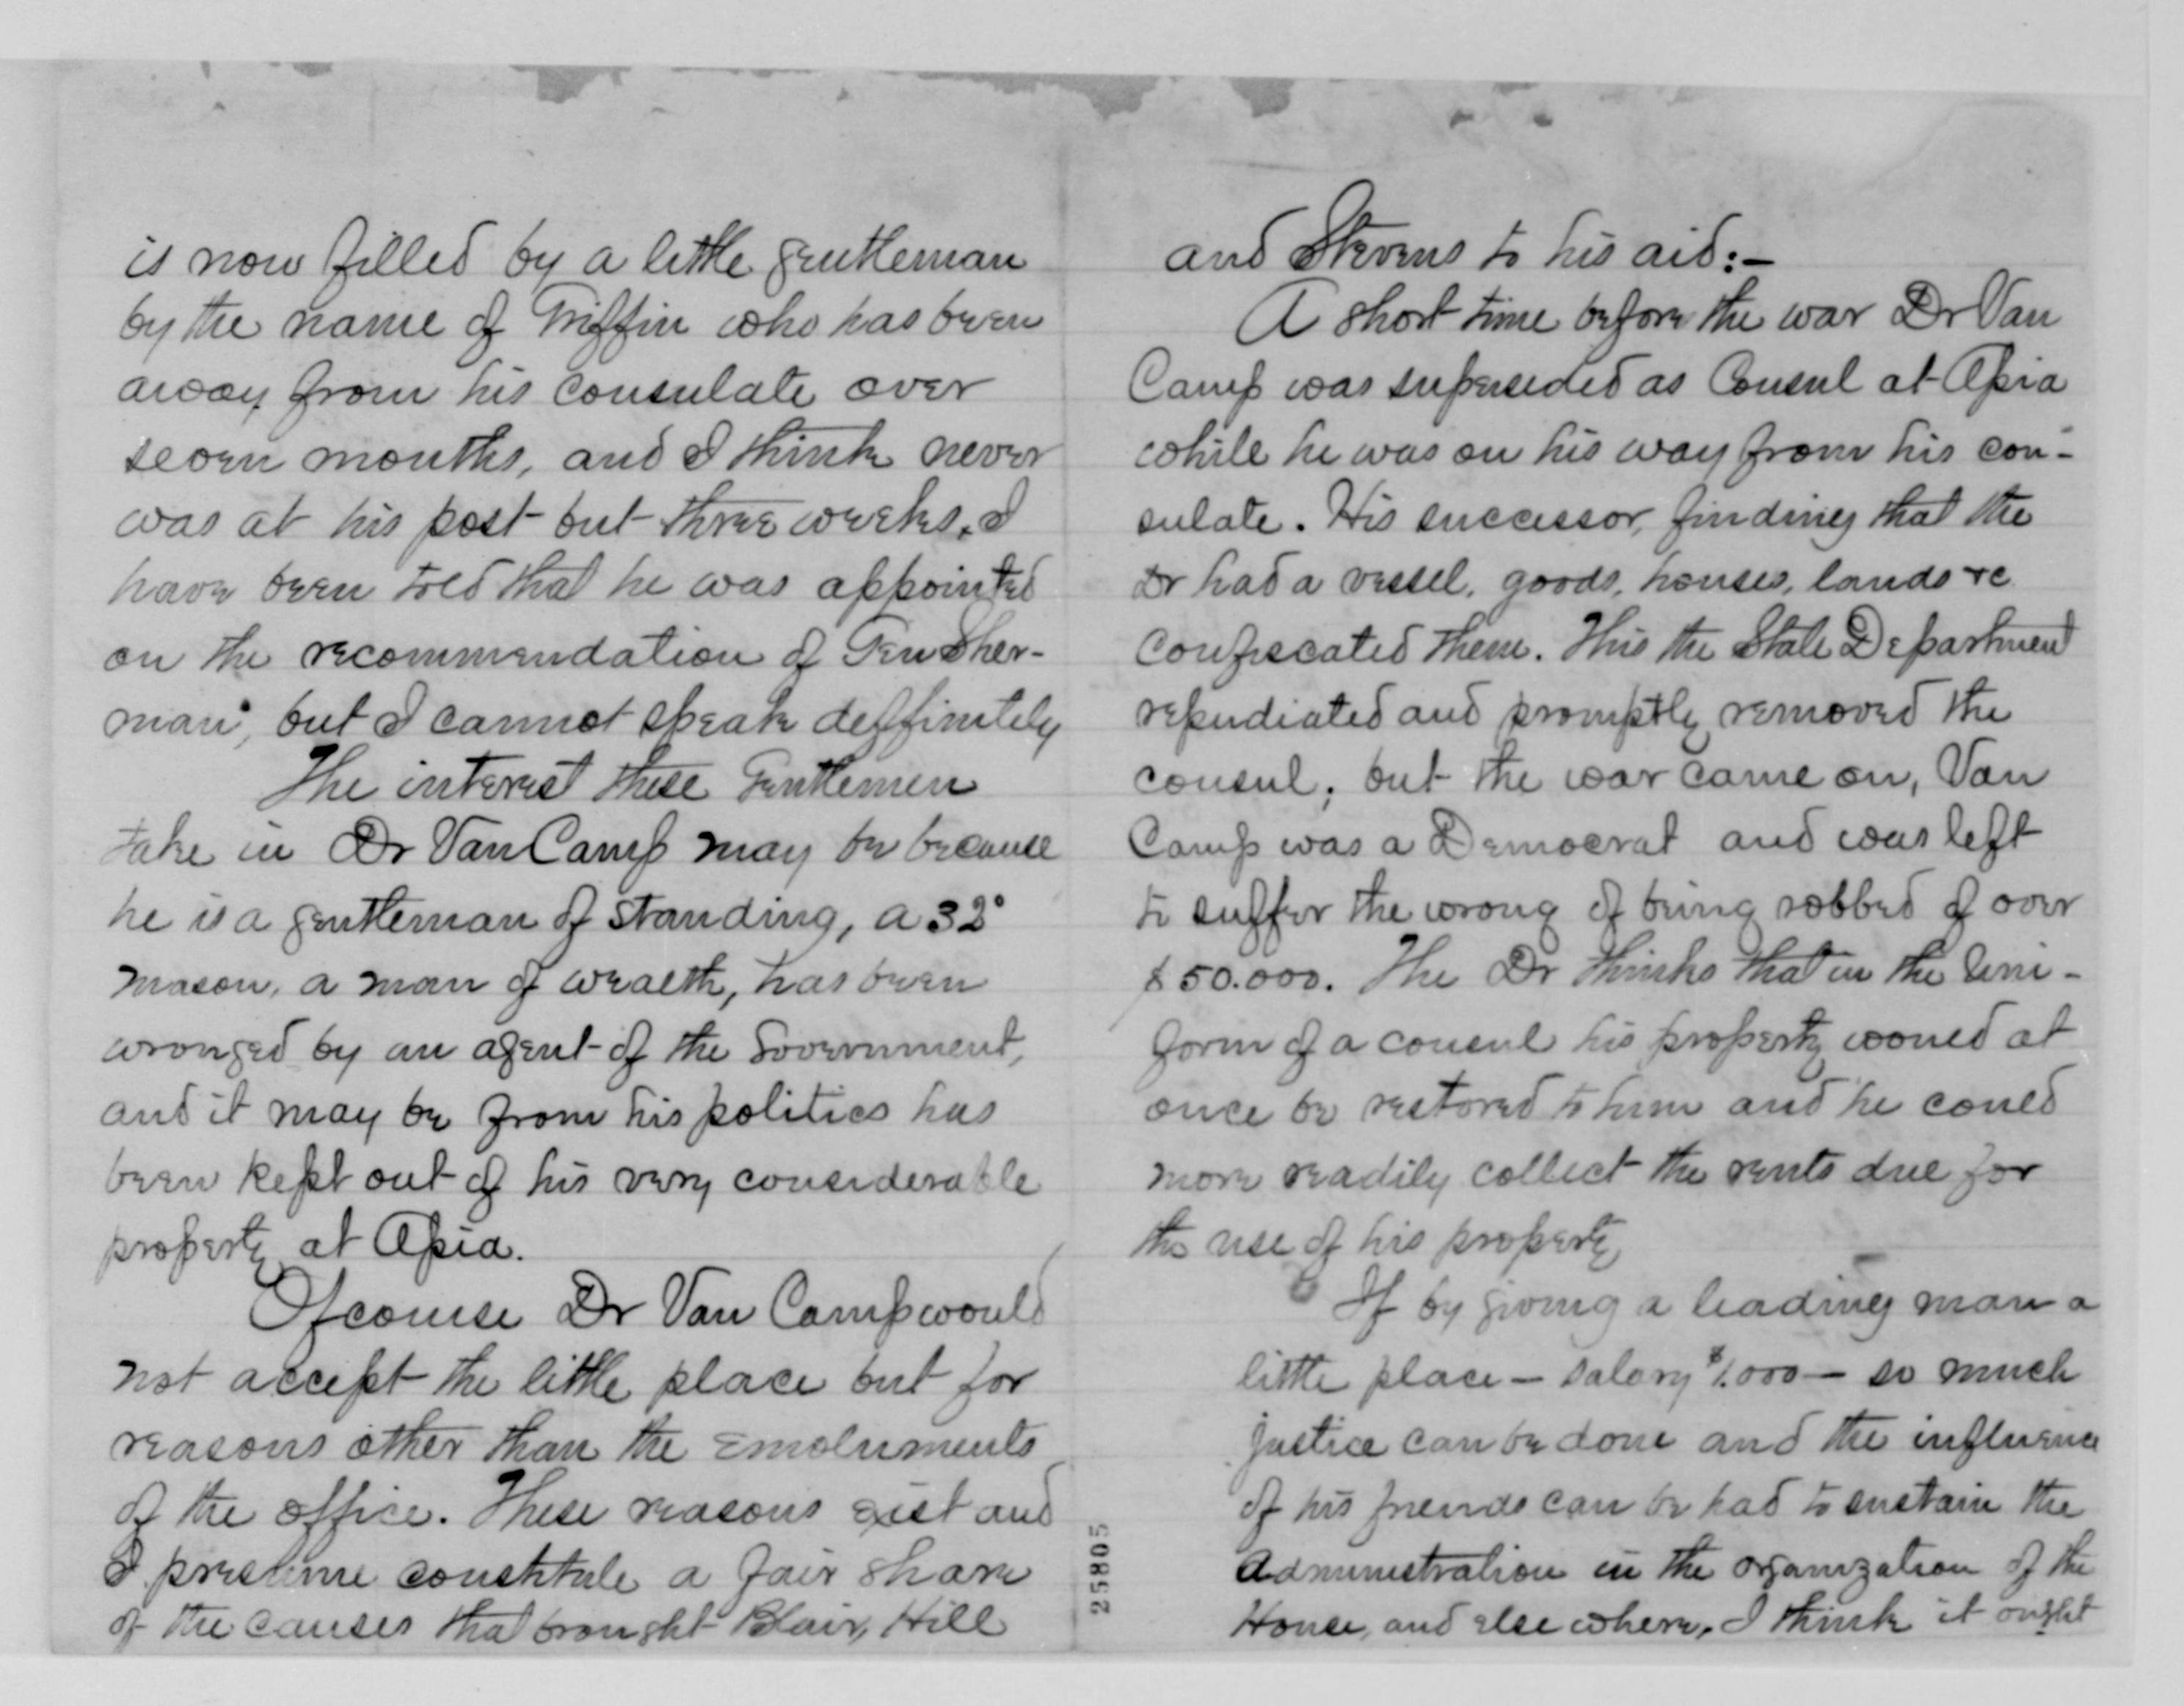 is now filled by a little gentleman
by the name of Griffin who has been
away from his consulate over
seven months, and I think never
was at his post but three weeks. I
have been told that he was appointed
on the recommendation of Gen Sher-
man, but I cannot speak deffinitely
The interest these Gentlemen
take in Dr Van Camp may be because
he is a gentleman of standing, a 32°
mason, a man of wealth, has been
wronged by an agent of the Government,
and it may be from his politics has
been kept out of his very considerable
property at Apia.
Of course Dr Van Camp would
not accept the little place but for
reasons other than the emoluments
of the office. These reasons exist and
I presume constitute a fair share
of the causes that brought Blair, Hill
and Stevens to his aid:—
A short time before the war Dr Van
Camp was superseded as Consul at Apia
while he was on his way from his con-
sulate. His successor, finding that the
Dr had a vessel, goods, houses, lands &c
confiscated them. This the State Department
repudiated and promptly removed the
consul; but the war came on, Van
Camp was a Democrat and was left
to suffer the wrong of being robbed of over
$50.000. The Dr thinks that in the Uni-
form of a consul his property would at
once be restored to him and he could
more readily collect the rents due for
the use of his property
If by giving a leading man a
little place — salary $1.000 — so much
justice can be done and the influence
of his friends can be had to sustain the
Administration in the organization of the
House, and else where, I think it ought
25805